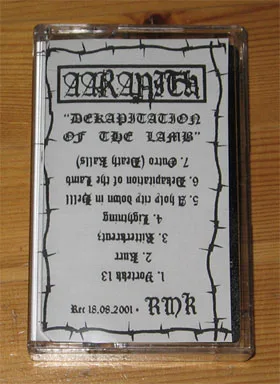 "DEKAPITATION
OF THE LAMB"
1. Vorteks 13
2.
3. Ritterkreutz
4. Lightning
5. A hole rip down in Helll
6. Dekapitation of the Lamb
7. Outro (Death Kalls)
Rec 18.08.2001 • RMK